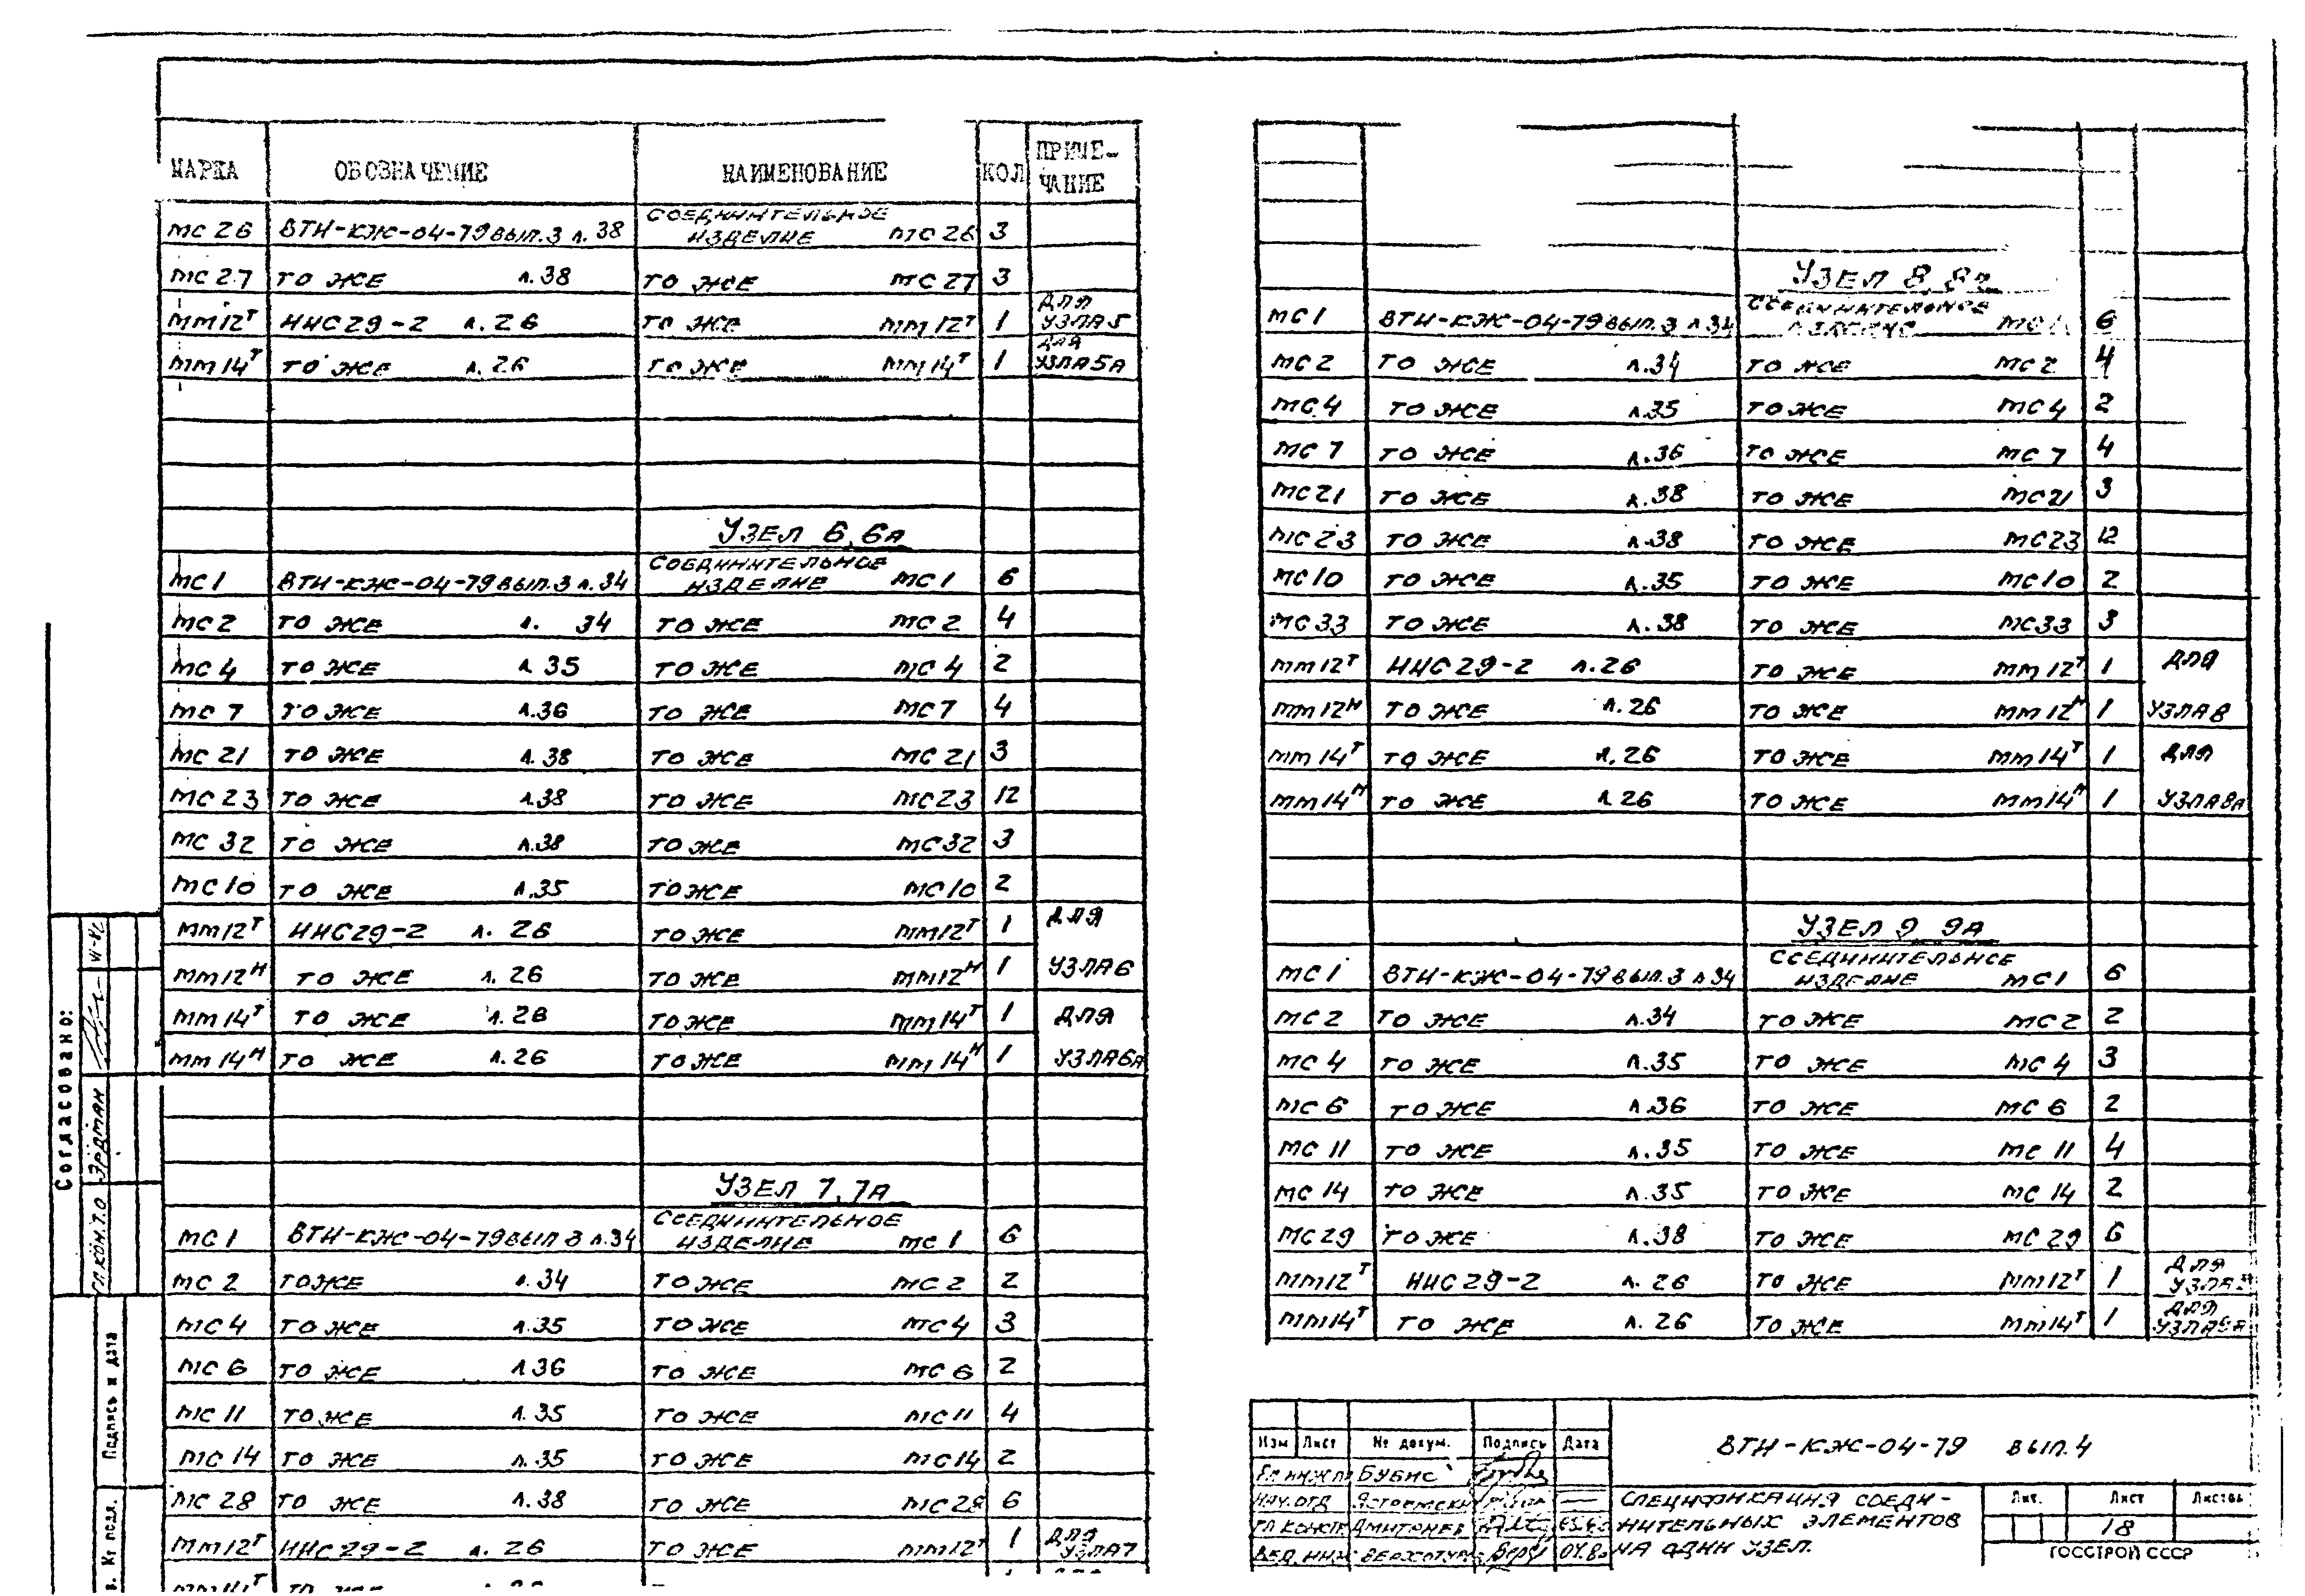 МАРКА ОБОЗНАЧЕНИЕ НАИМЕНОВАНИЕ КОЛ ПРИМЕ-
ЧАНИЕ
МС 26 ВТИ-КЖ-04-79 ВЫП.3 Л.38 СОЕДИНИТЕЛЬНОЕ
ИЗДЕЛИЕ МС 26 3
МС 27 ТО ЖЕ Л.38 ТО ЖЕ МС 27 3
ММ12Т ИИС29-2 Л.26 ТО ЖЕ ММ12Т 1 ДЛЯ
УЗЛА5
ММ14Т ТО ЖЕ Л.26 ТО ЖЕ ММ14Т 1 ДЛЯ
УЗЛА5А
УЗЕЛ 6,6А
МС1 ВТИ-КЖ-04-79 ВЫП.3 Л.34 СОЕДИНИТЕЛЬНОЕ
ИЗДЕЛИЕ МС1 6
МС2 ТО ЖЕ Л. 34 ТО ЖЕ МС2 4
МС4 ТО ЖЕ Л.35 ТО ЖЕ МС4 2
МС7 ТО ЖЕ Л.36 ТО ЖЕ МС7 4
МС21 ТО ЖЕ Л.38 ТО ЖЕ МС21 3
МС23 ТО ЖЕ Л.38 ТО ЖЕ МС23 12
МС32 ТО ЖЕ Л.38 ТО ЖЕ МС32 3
МС10 ТО ЖЕ Л.35 ТО ЖЕ МС10 2
ММ12Т ИИС29-2 Л.26 ТО ЖЕ ММ12Т 1 ДЛЯ
ММ12Н ТО ЖЕ Л.26 ТО ЖЕ ММ12Н 1 УЗЛА6
ММ14Т ТО ЖЕ Л.26 ТО ЖЕ ММ14Т 1 ДЛЯ
ММ14Н ТО ЖЕ Л.26 ТО ЖЕ ММ14Н 1 УЗЛА6А
УЗЕЛ 7,7А
МС1 ВТИ-КЖ-04-79 ВЫП 3 Л.34 СОЕДИНИТЕЛЬНОЕ
ИЗДЕЛИЕ МС1 6
МС2 ТО ЖЕ Л.34 ТО ЖЕ МС2 2
МС4 ТО ЖЕ Л.35 ТО ЖЕ МС4 3
МС6 ТО ЖЕ Л.36 ТО ЖЕ МС6 2
МС11 ТО ЖЕ Л.35 ТО ЖЕ МС11 4
МС14 ТО ЖЕ Л.35 ТО ЖЕ МС14 2
МС28 ТО ЖЕ Л.38 ТО ЖЕ МС28 6
ММ12Т ИИС29-2 Л.26 ТО ЖЕ ММ12Т 1 ДЛЯ
УЗЛА7
УЗЕЛ 8,8А
МС1 ВТИ-КЖ-04-79 ВЫП.3 Л.34 СОЕДИНИТЕЛЬНОЕ
ИЗДЕЛИЕ МС1 6
МС2 ТО ЖЕ Л.34 ТО ЖЕ МС2 4
МС4 ТО ЖЕ Л.35 ТО ЖЕ МС4 2
МС7 ТО ЖЕ Л.36 ТО ЖЕ МС7 4
МС21 ТО ЖЕ Л.38 ТО ЖЕ МС21 3
МС23 ТО ЖЕ Л.38 ТО ЖЕ МС23 12
МС10 ТО ЖЕ Л.35 ТО ЖЕ МС10 2
МС33 ТО ЖЕ Л.38 ТО ЖЕ МС33 3
ММ12Т ИИС29-2 Л.26 ТО ЖЕ ММ12Т 1 ДЛЯ
ММ12Н ТО ЖЕ Л.26 ТО ЖЕ ММ12Н 1 УЗЛА8
ММ14Т ТО ЖЕ Л.26 ТО ЖЕ ММ14Т 1 ДЛЯ
ММ14Н ТО ЖЕ Л.26 ТО ЖЕ ММ14Н 1 УЗЛА8А
УЗЕЛ 9 9А
МС1 ВТИ-КЖ-04-79 ВЫП.3 Л.34 СОЕДИНИТЕЛЬНОЕ
ИЗДЕЛИЕ МС1 6
МС2 ТО ЖЕ Л.34 ТО ЖЕ МС2 2
МС4 ТО ЖЕ Л.35 ТО ЖЕ МС4 3
МС6 ТО ЖЕ Л.36 ТО ЖЕ МС6 2
МС11 ТО ЖЕ Л.35 ТО ЖЕ МС11 4
МС14 ТО ЖЕ Л.35 ТО ЖЕ МС14 2
МС29 ТО ЖЕ Л.38 ТО ЖЕ МС29 6
ММ12Т ИИС29-2 Л.26 ТО ЖЕ ММ12Т 1 ДЛЯ
ММ14Т ТО ЖЕ Л.26 ТО ЖЕ ММ14Т 1 ДЛЯ
УЗЛА9А
Согласовано:
ГЛ.КОН.Т.О ЭРДМАН
Подпись и дата
Изм Лист № докум. Подпись Дата
ВТИ-КЖ-04-79 ВЫП.4
БУБИС
НАЧ.ОТД
СПЕЦИФИКАЦИЯ СОЕДИ-
НИТЕЛЬНЫХ ЭЛЕМЕНТОВ
НА ОДИН УЗЕЛ.
Лит. Лист Листов
18
ГОССТРОЙ СССР